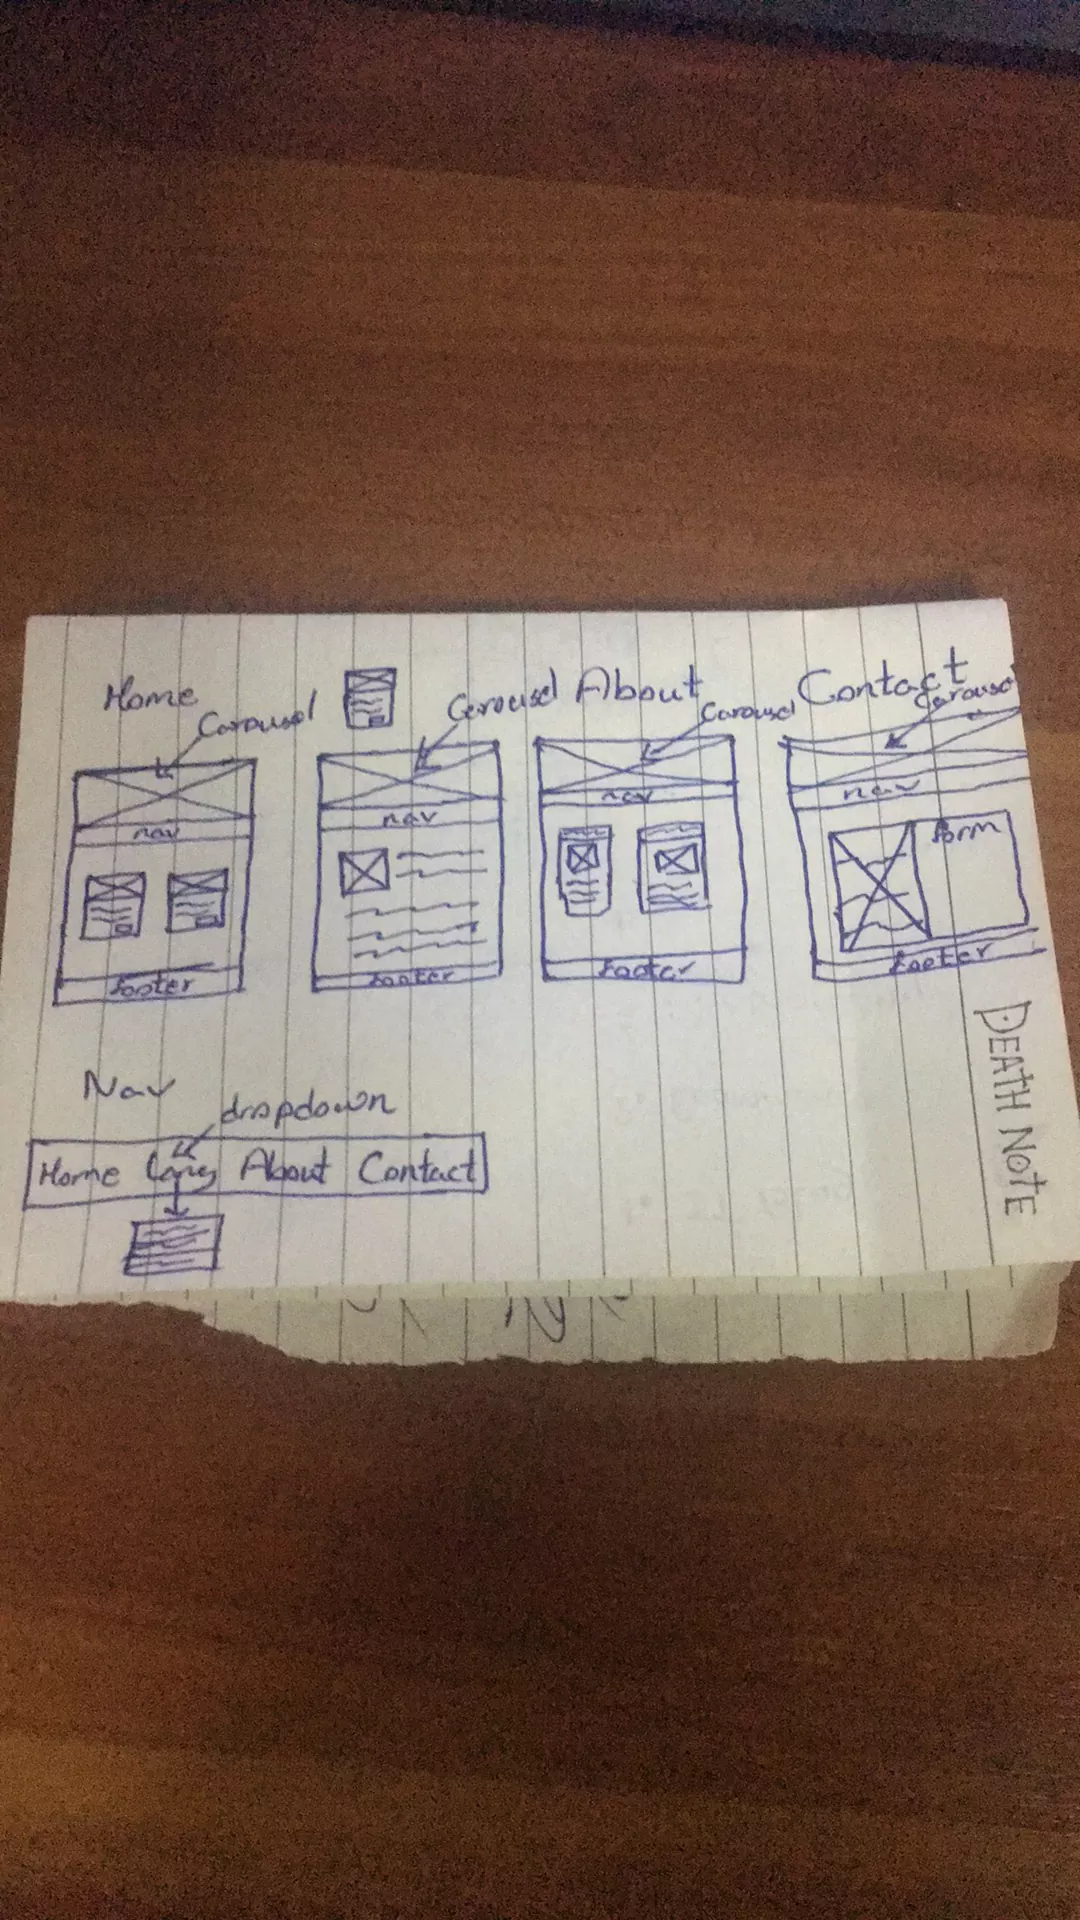 Home
Carousel
nav
footer
Carousel
nav
footer
About
Carousel
nav
footer
Contact
Carousel
nav
form
footer
Nav
dropdown
Home
About Contact
DEATH NOTE